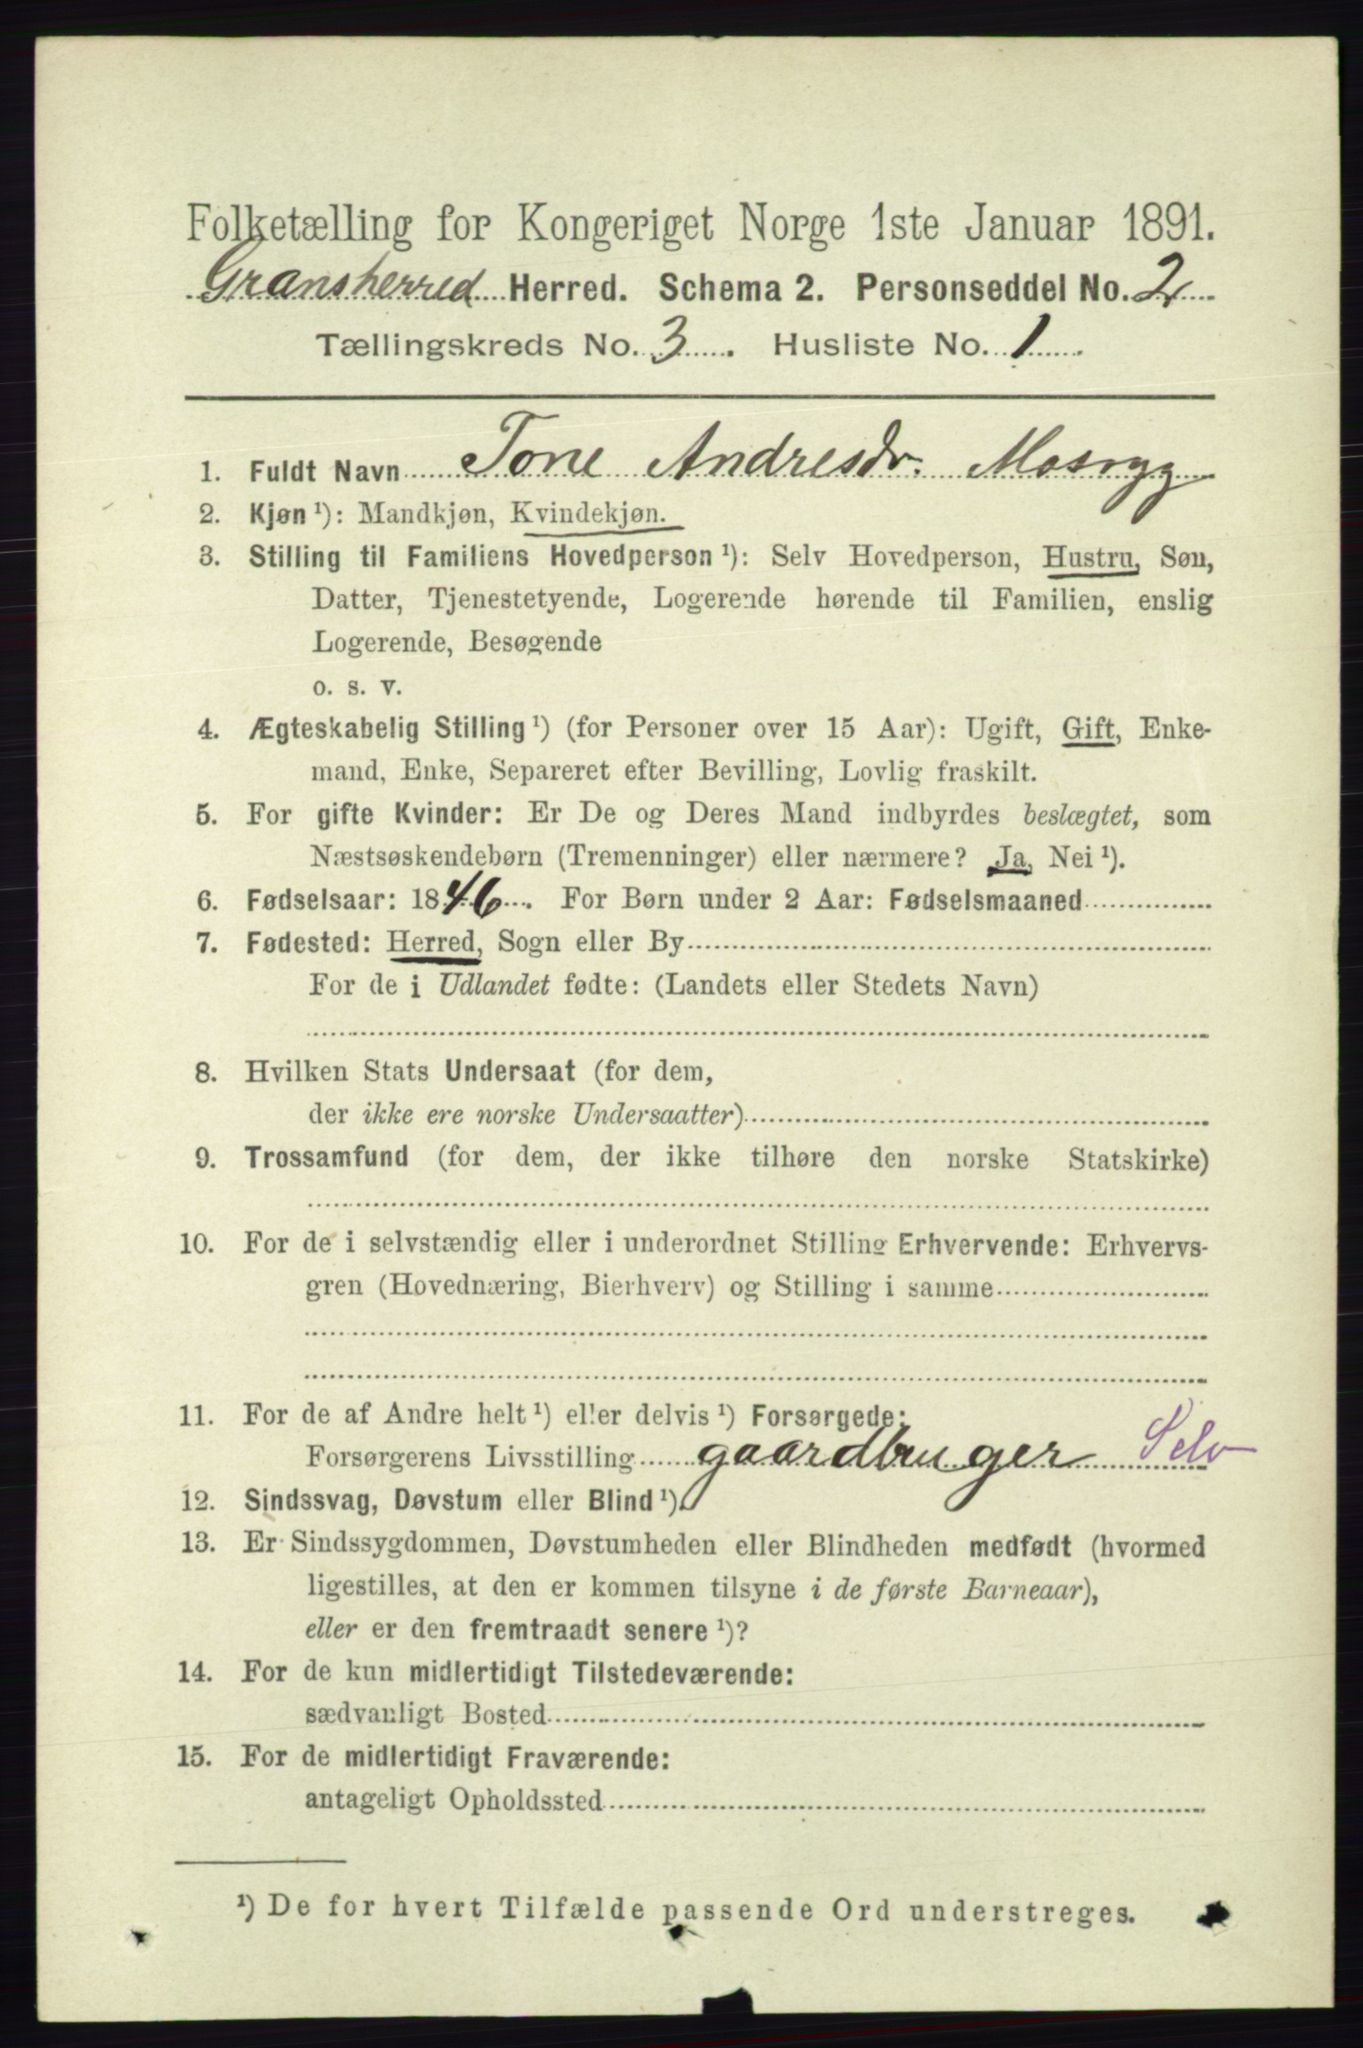 Folketælling for Kongeriget Norge 1ste Januar 1891.
Gransherred Herred. Schema 2. Personseddel No. 2
Tællingskreds No. 3. Husliste No. 1
1. Fuldt Navn Tone Andresdr. Mosrygg
2. Kjøn ¹): Mandkjøn, Kvindekjøn.
3. Stilling til Familiens Hovedperson ¹): Selv Hovedperson, Hustru, Søn,
Datter, Tjenestetyende, Logerende hørende til Familien, enslig
Logerende, Besøgende
o. s. v.
4. Ægteskabelig Stilling ¹) (for Personer over 15 Aar): Ugift, Gift, Enke-
mand, Enke, Separeret efter Bevilling, Lovlig fraskilt.
5. For gifte Kvinder: Er De og Deres Mand indbyrdes beslægtet, som
Næstsøskendebørn (Tremenninger) eller nærmere? Ja, Nei ¹).
6. Fødselsaar: 1846. For Børn under 2 Aar: Fødselsmaaned
7. Fødested: Herred, Sogn eller By
For de i Udlandet fødte: (Landets eller Stedets Navn)
8. Hvilken Stats Undersaat (for dem,
der ikke ere norske Undersaatter)
9. Trossamfund (for dem, der ikke tilhøre den norske Statskirke)
10. For de i selvstændig eller i underordnet Stilling Erhvervende: Erhvervs-
gren (Hovednæring, Bierhverv) og Stilling i samme
11. For de af Andre helt ¹) eller delvis ¹) Forsørgede:
Forsørgerens Livsstilling gaardbruger Selv
12. Sindssvag, Døvstum eller Blind ¹).
13. Er Sindssygdommen, Døvstumheden eller Blindheden medfødt (hvormed
ligestilles, at den er kommen tilsyne i de første Barneaar),
eller er den fremtraadt senere ¹)?
14. For de kun midlertidigt Tilstedeværende:
sædvanligt Bosted
15. For de midlertidigt Fraværende:
antageligt Opholdssted
¹) De for hvert Tilfælde passende Ord understreges.